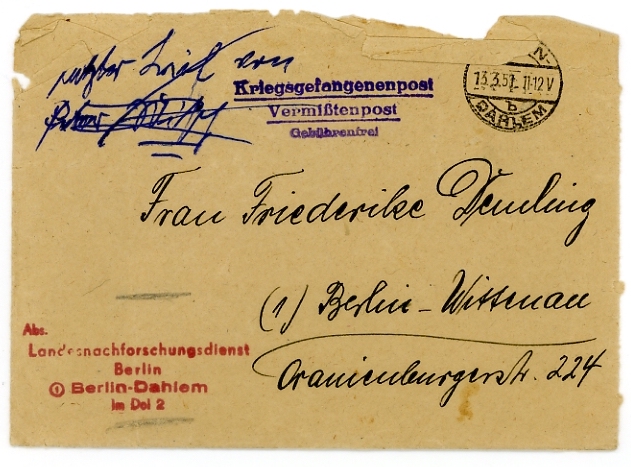 Kriegsgefangenenpost
Vermißtenpost
Gebührenfrei
13.3.51.11-12V
b
DAHLEM
Frau Friederike Demling
(1) Berlin-Wittenau
Oranienburgerstr. 224
Abs.
Landesnachforschungsdienst
Berlin
① Berlin-Dahlem
Im Dol 2